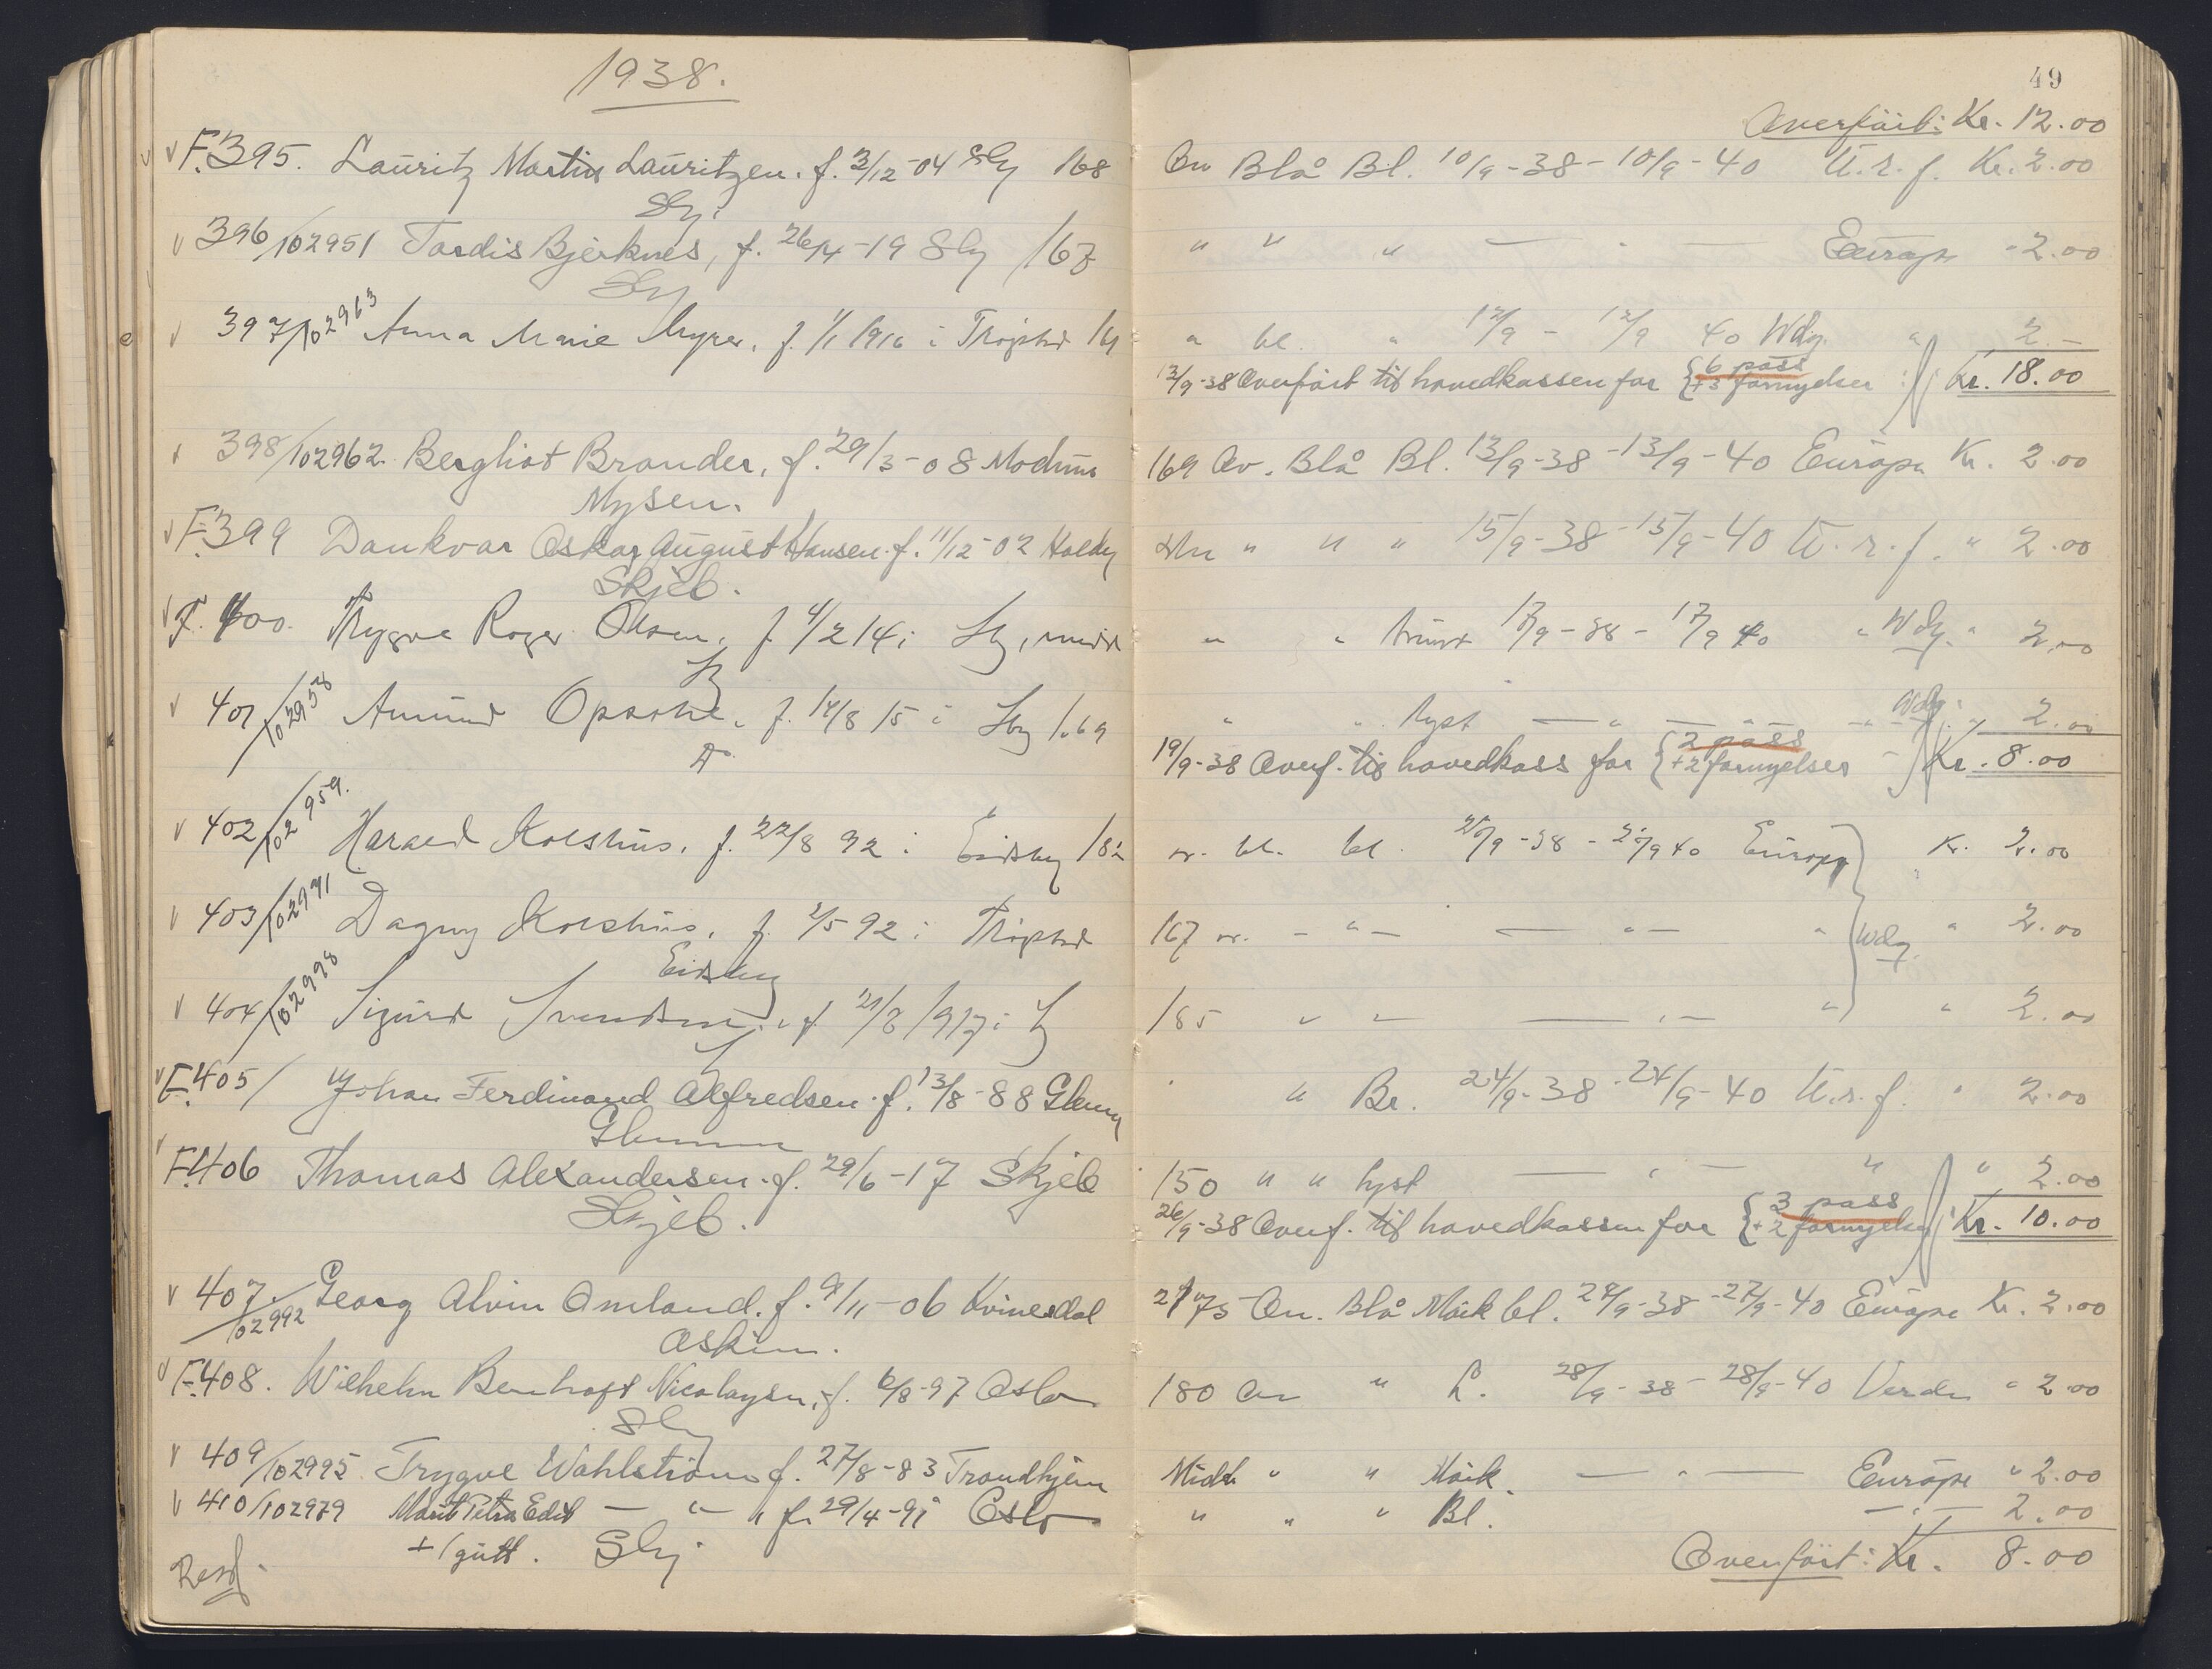 1938.
F.395. Lauritz Martin Lauritzen. f. 3/12-04 Sbg 168
Sbg.
396/102951 Tordis Bjerknes, f. 26/4-19 Sbg 167
Sbg
397/102963 Anna Marie Myrer, f. 1/1 1916 i Trøgstad 161
398/102962. Bergliot Brander, f. 29/3-08 Modum
Mysen.
F.399 Dankvar Oskar August Hansen. f. 11/12-02 Halden
Skjeb.
F. 400. Thrygve Roger Olsen, f. 4/2 14 i Sbg, midd
401/102958 Amund Opsahl, f. 14/8 15 i Sbg 1.69
402/102959. Harald Kolshus, f. 22/8 92 i Eidsberg 182
403/102971 Dagny Kolshus, f. 2/5 92 i Trøgstad
Eidsberg
404/102998 Sigurd Svendsen, f. 21/8 1917 i
F.405/ Johan Ferdinand Alfredsen. f. 13/8-88 Glemm
Glemmen
F.406 Thomas Alexandersen. f. 29/6-17 Skjeb
Skjeb.
407./102992 Georg Alvin Omland. f. 9/11-06 Kvinesdal
Askim.
F.408. Wilhelm Benhoft Nicolaysen, f. 6/8-97 Oslo
Sbg
409/102995 Trygve Wahlstrøm f. 27/8-83 Trondhjem
410/102979 Marit Petra Edit — " — " f. 29/4-91 Oslo
+ 1 gutt. Sbg
Resf.
49
Overført: Kr. 12.00
Ov Blå Bl. 10/9-38-10/9-40 U.r.f. Kr. 2.00
" " " — " — Europa - 2.00
" bl. " 12/9 - 12/9 40 Wdg. " 2.-
13/9-38 Overført til hovedkassen for {6 pass + 3 fornyelser : Kr. 18.00
169 Ov. Blå Bl. 13/9-38-13/9-40 Europa Kr. 2.00
" " " 15/9-38-15/9-40 U.r.f. " 2.00
" " brunt 17/9-38-17/9 40 " Wdg. " 2.00
" " lyst — " — " — Wdg. " 2.00
19/9-38 Overf. til hovedkass for {2 pass + 2 fornyelser - Kr. 8.00
ov. bl. bl. 20/9-38 - 20/9 40 Europa Kr. 2.00
167 ov. - " — — " — " Wdg. " 2.00
185 " " — " — " " 2.00
" Br. 24/9-38-24/9-40 U.r.f. " 2.00
150 " " lyst — " — " " 2.00
26/9-38 Overf. til hovedkassen for {3 pass + 2 fornyelser Kr. 10.00
175 Ov. Blå Mørk bl. 27/9-38-27/9-40 Europa Kr. 2.00
180 Ov " L. 28/9-38-28/9-40 Verden " 2.00
Midd " " Mørk. — " — Europa " 2.00
" " " Bl. — " — 2.00
Overført: Kr. 8.00